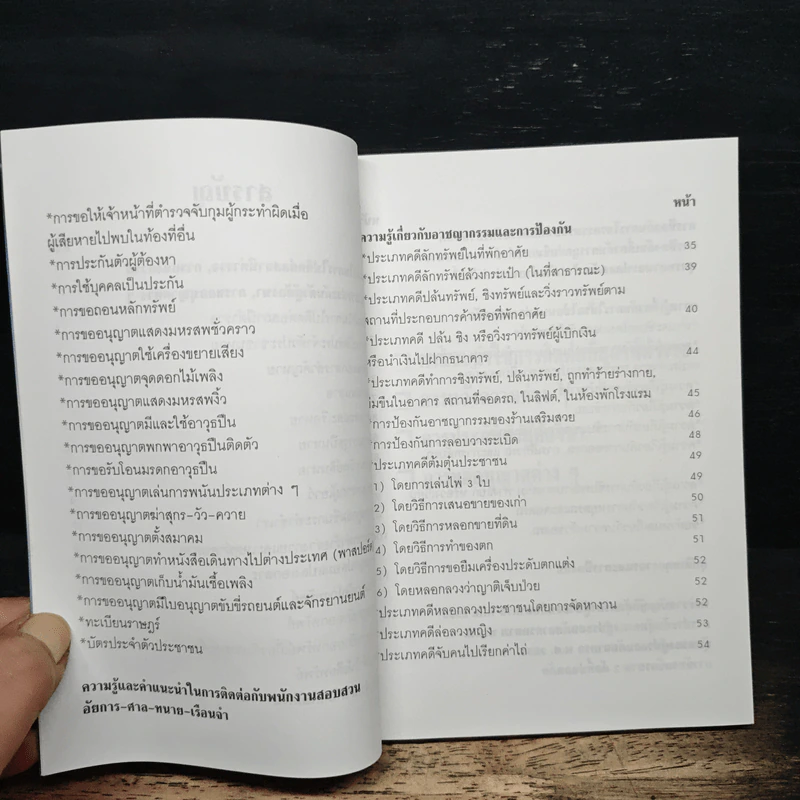 *การขอให้เจ้าหน้าที่ตำรวจจับกุมผู้กระทำผิดเมื่อ
ผู้เสียหายไปพบในท้องที่อื่น
*การประกันตัวผู้ต้องหา
*การใช้บุคคลเป็นประกัน
*การขอถอนหลักทรัพย์
*การขออนุญาตแสดงมหรสพชั่วคราว
*การขออนุญาตใช้เครื่องขยายเสียง
*การขออนุญาตจุดดอกไม้เพลิง
*การขออนุญาตแสดงมหรสพงิ้ว
*การขออนุญาตมีและใช้อาวุธปืน
*การขออนุญาตพกพาอาวุธปืนติดตัว
*การขอรับโอนมรดกอาวุธปืน
*การขออนุญาตเล่นการพนันประเภทต่าง ๆ
*การขออนุญาตฆ่าสุกร-วัว-ควาย
*การขออนุญาตตั้งสมาคม
*การขออนุญาตทำหนังสือเดินทางไปต่างประเทศ (พาสปอร์ต
*การขออนุญาตเก็บน้ำมันเชื้อเพลิง
*การขออนุญาตมีใบอนุญาตขับขี่รถยนต์และจักรยานยนต์
*ทะเบียนราษฎร์
*บัตรประจำตัวประชาชน
ความรู้และคำแนะนำในการติดต่อกับพนักงานสอบสวน
อัยการ-ศาล-ทนาย-เรือนจำ
หน้า
ความรู้เกี่ยวกับอาชญากรรมและการป้องกัน
*ประเภทคดีลักทรัพย์ในที่พักอาศัย 35
*ประเภทคดีลักทรัพย์ล้วงกระเป๋า (ในที่สาธารณะ) 39
*ประเภทคดีปล้นทรัพย์, ชิงทรัพย์และวิ่งราวทรัพย์ตาม
สถานที่ประกอบการค้าหรือที่พักอาศัย 40
*ประเภทคดี ปล้น ชิง หรือวิ่งราวทรัพย์ผู้เบิกเงิน
หรือนำเงินไปฝากธนาคาร 44
*ประเภทคดีทำการชิงทรัพย์, ปล้นทรัพย์, ถูกทำร้ายร่างกาย,
ข่มขืนในอาคาร สถานที่จอดรถ, ในลิฟต์, ในห้องพักโรงแรม 45
*การป้องกันอาชญากรรมของร้านเสริมสวย 46
*การป้องกันการลอบวางระเบิด 48
ประเภทคดีต้มตุ๋นประชาชน 49
1) โดยการเล่นไพ่ 3 ใบ 49
2) โดยวิธีการเสนอขายของเก่า 50
3) โดยวิธีการหลอกขายที่ดิน 51
4) โดยวิธีการทำของตก 51
5) โดยวิธีการขอยืมเครื่องประดับตกแต่ง 52
6) โดยหลอกลวงว่าญาติเจ็บป่วย 52
ประเภทคดีหลอกลวงประชาชนโดยการจัดหางาน 52
ประเภทคดีล่อลวงหญิง 53
ประเภทคดีจับคนไปเรียกค่าไถ่ 54